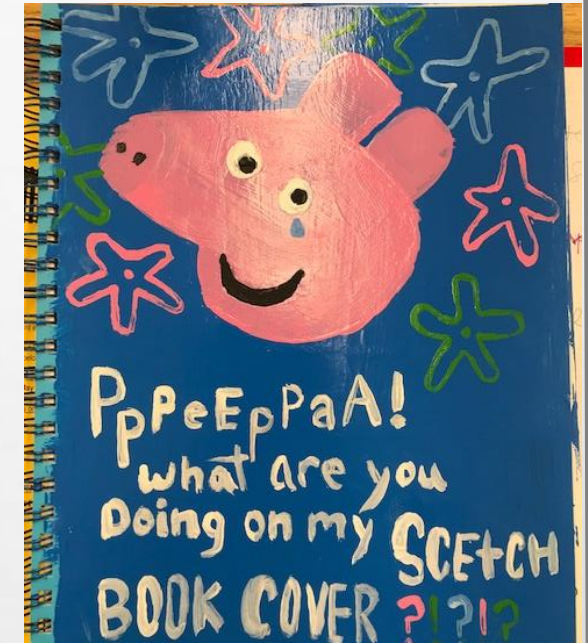 PpPeEpPaA!
what are you
Doing on my SCEtCH
BOOK COVER ?!?!?